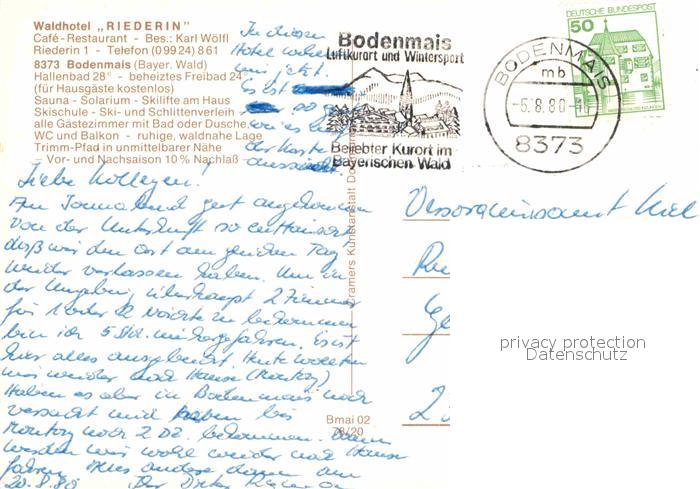 Waldhotel „RIEDERIN"
Café-Restaurant - Bes.: Karl Wölfl
Riederin 1 - Telefon (0 99 24) 8 61
8373 Bodenmais (Bayer. Wald)
Hallenbad 28° - beheiztes Freibad 24°
(für Hausgäste kostenlos)
Sauna - Solarium - Skilifte am Haus
Skischule - Ski- und Schlittenverleih -
alle Gästezimmer mit Bad oder Dusche,
WC und Balkon - ruhige, waldnahe Lage
Trimm-Pfad in unmittelbarer Nähe
– Vor- und Nachsaison 10 % Nachlaß –
In diesem
Hotel wohnen
wir jetzt.
Es ist
so
wie es
der Karte
aussieht.
Bodenmais
Luftkurort und Wintersport
Beliebter Kurort im
Bayerischen Wald
BODENMAIS
mb
-5.8.80-
8373
50
DEUTSCHE BUNDESPOST
Liebe Kollegen!
Am Sonnabend gut angekommen
von der Unterkunft so enttäuscht
daß wir den Ort am gleichen Tag
wieder verlassen haben. Um in
der Umgebung überhaupt 2 Zimmer
für 1 oder 2 Nächte zu bekommen
bin ich 5 Std. umhergefahren. Es ist
hier alles ausgebucht. Heute wollten
wir wieder nach Hause (Montag)
Haben es aber in Bodenmais noch
versucht und haben bis
Montag noch 2 DZ. bekommen. Dann
werden wir wohl wieder nach Hause
fahren. Alles andere dann am
20.8.80 Der Dieter
Versorgungsamt Kiel
Cramers Kunstanstalt Do
Bmai 02
/20
privacy protection
Datenschutz